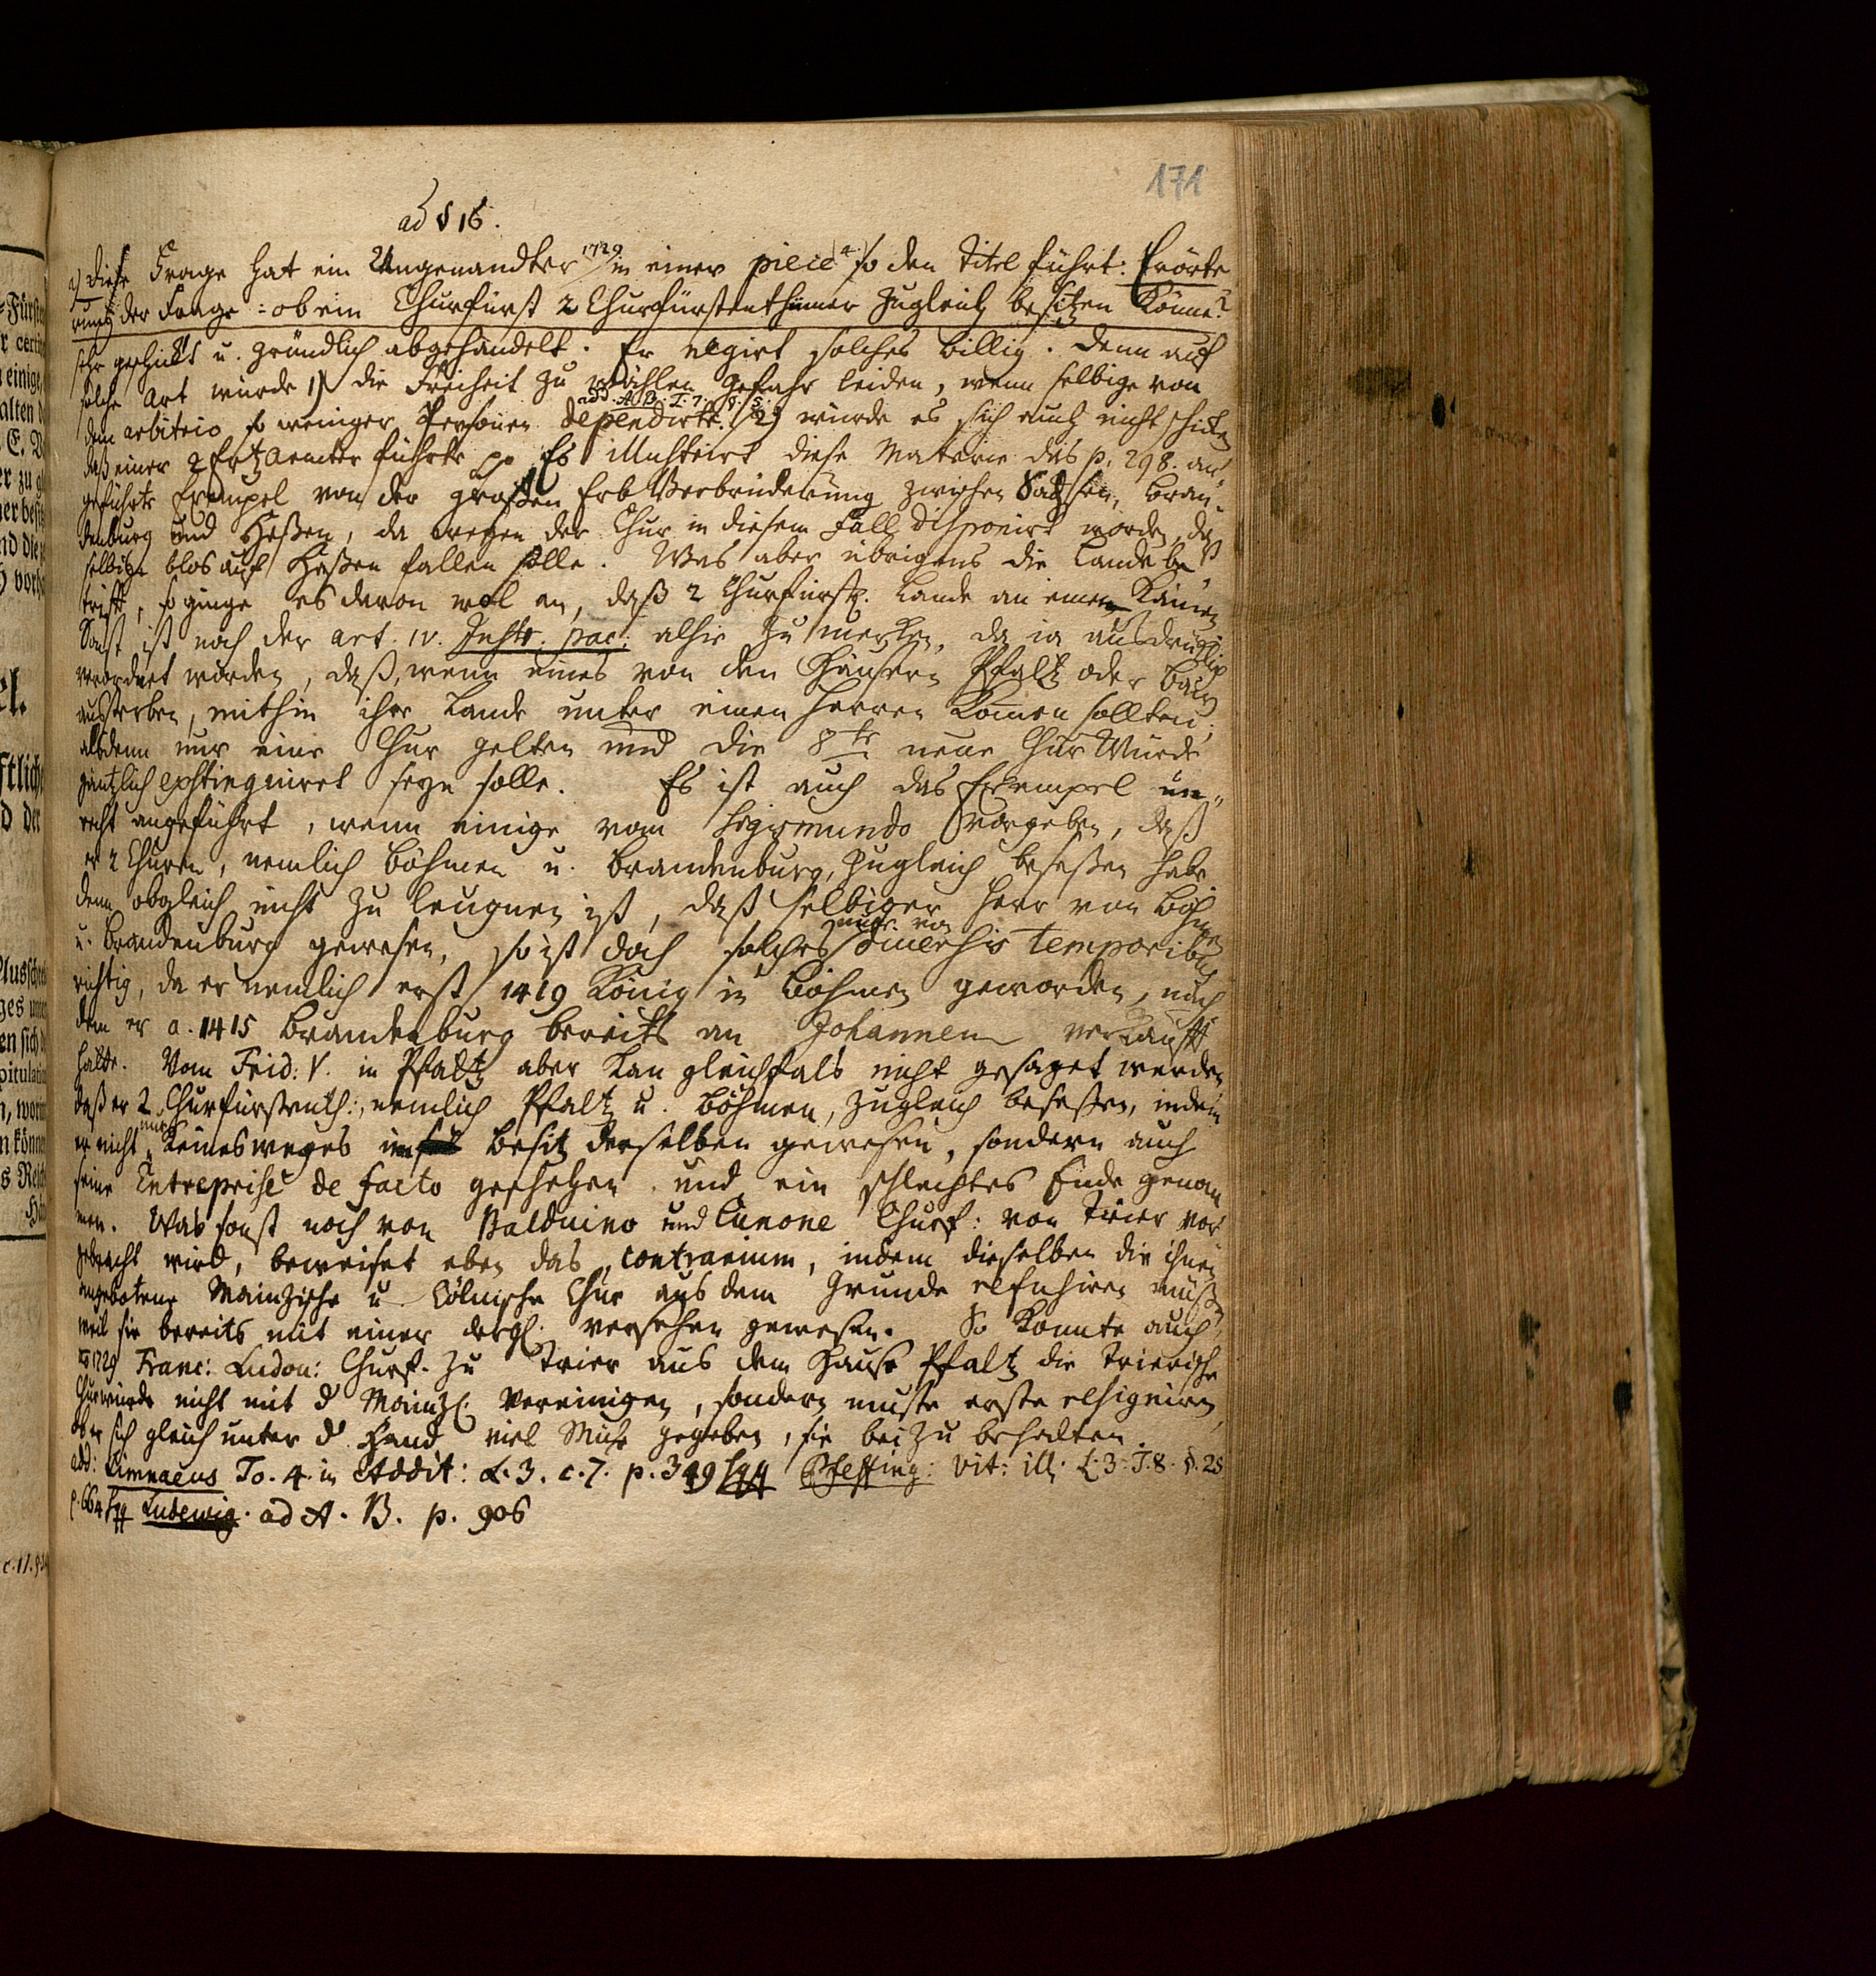 171
ad § 16.
a) Diese Frage hat ein Ungenandter 1729 in einer piece so den Titel führt: Erörte
rung der Frage: ob ein Churfürst 2 Churfürstenthümer zugleich besitzen könne?
sehr geschickt u. gründlich abgehandelt. Er negirt solches billig. Denn auf
solche Art würde 1) die Freiheit zu wählen Gefahr leiden, wenn selbige von
add. A. B. T. 7. §. 5.
dem arbitrio so weniger Personen dependirte. 2) würde es sich auch nicht schicken
daß einer 2 Ertz Aemter führte pp Es illustrirt diese Materie das p. 298. an-
geführte Exempel von der großen Erb Verbrüderung zwischen Sachsen, Bran-
denburg und Heßen, da wegen der Chur in diesem Fall disponirt worden, daß
selbige blos auf Heßen fallen solle. Was aber übrigens die Lande be-
trift, so ginge es davon wol an, daß 2 Churfürstl. Lande an einen kämen
Sonst ist noch der art. IV. Instr. pac: alhie zu merken, da in ausdrücklich
verordnet worden, daß, wenn eines von den Häusern Pfaltz oder Baiern
aussterben, mithin ihre Lande unter einen Herren komen sollten,
alsdenn nur eine Chur gelten und die 8te neue Chur Würde
gäntzlich exstinguiret seyn solle. Es ist auch das Exempel un-
recht angeführt, wenn einige vom Sigismundo vorgeben, daß
er 2 Churen, nemlich Böhmen u. Brandenburg, zugleich beseßen habe
denn obgleich nicht zu leugnen ist, daß selbiger Herr von Böhmen
u. Brandenburg gewesen, so ist doch solches nur von diversis temporibus
richtig, da er nemlich erst 1419 König in Böhmen geworden, nach
dem er a. 1415 Brandenburg bereits an Johannem verkaufft
hatte. Vom Frid: V. in Pfaltz aber kan gleichfals nicht gesaget werden
daß er 2 Churfürstenth:, nemlich Pfaltz u. Böhmen, zugleich beseßen, indem
er nicht nur keinesweges im Besitz derselben gewesen, sondern auch
seine Entreprise de facto geschehen und ein schlechtes Ende genom
men. Was sonst noch von Balduino und Cunone Churf: von Trier vor
gebracht wird, beweiset eben das contrarium, indem dieselben die ihnen
angebotene Mainzische u. Cölnische Chur aus dem Grunde refusiren müßen
weil sie bereits mit einer dergl. versehen gewesen. So konnte auch
1729 Franc: Ludov: Churf. zu Trier aus dem Hause Pfaltz die Trierische
Churwürde nicht mit d Mainzl. vereinigen, sondern muste erste resigniren,
ob er sich gleich unter d Hand viel Mühe gegeben, sie bei zu behalten.
add: Limnaeus To. 4. in Addit: L. 3. c. 7. p. 349 sqq Pfeffing: Vit: ill: L. 3. T. 8. §. 25
p. 664 sqq Ludewig. ad A. B. p. 906